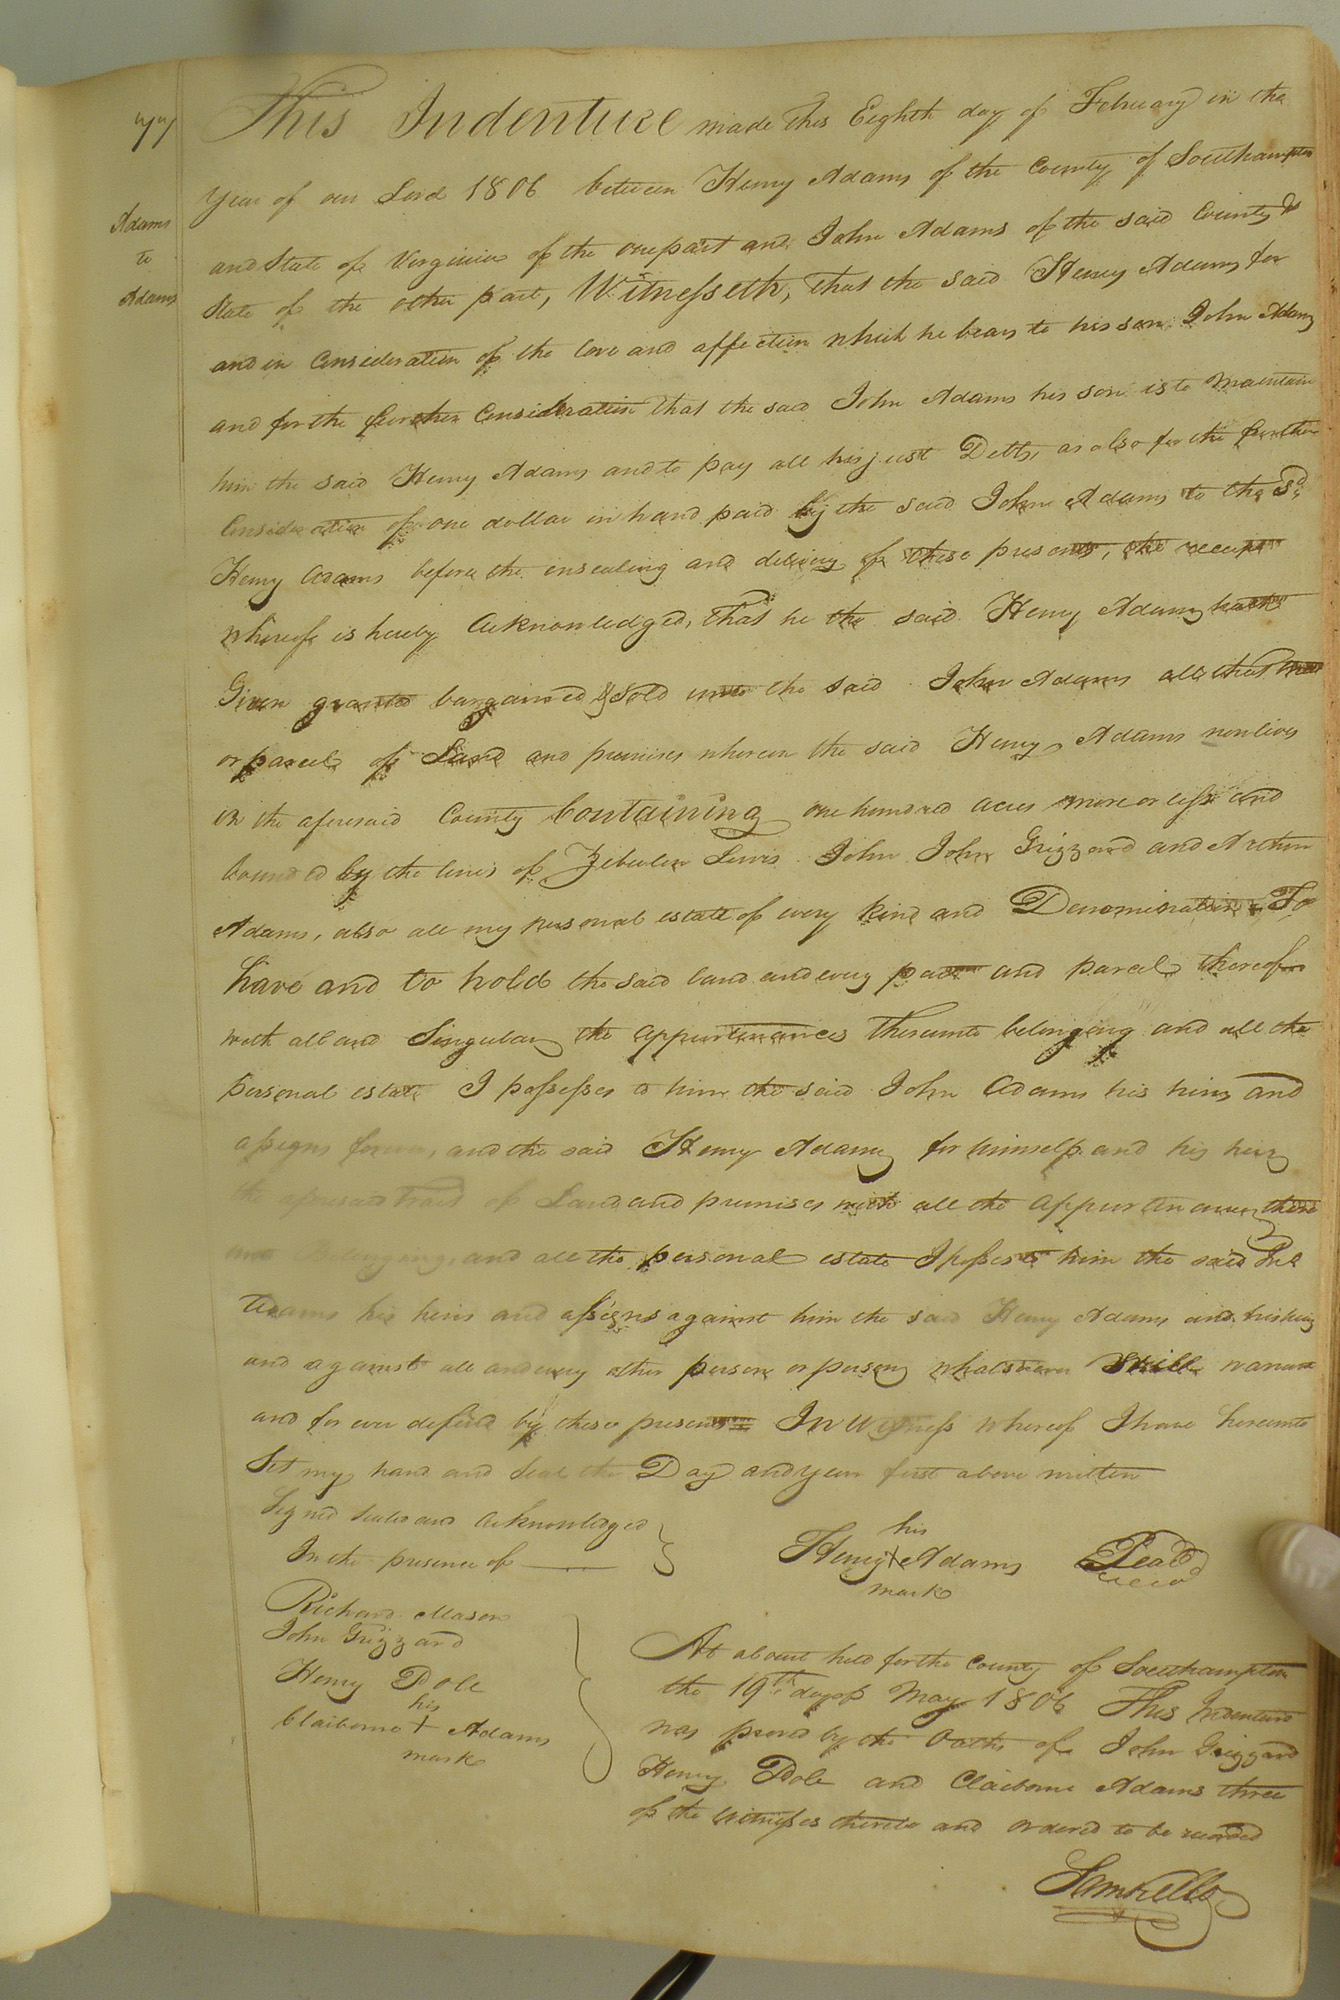 77
Adams
to
Adams
This Indenture made this Eighth day of February in the
year of our Lord 1806 between Henry Adams of the County of Southampton
and State of Virginia of the one part and John Adams of the said County &
State of the other part, Witnesseth, that the said Henry Adams for
and in Consideration of the love and affection which he bears to his son John Adams
and for the further Consideration that the said John Adams his son is to maintain
him the said Henry Adams and to pay all his just Debts, as also for the further
Consideration of one dollar in hand paid by the said John Adams to the sd.
Henry Adams before the ensealing and delivery of these presents, the receipt
whereof is hereby Acknowledged, that he the said Henry Adams hath
Given granted bargained & sold unto the said John Adams all that
or parcel of Land and premises wherein the said Henry Adams now lives
in the aforesaid County Containing one hundred acres more or less and
bounded by the lines of Zebulon Lewis John John Grizzard and Arthur
Adams, also all my personal estate of every kind and Denomination To
have and to hold the said land and every part and parcel thereof
with all and Singular the appurtenances thereunto belonging and all the
personal estate I possesses to him the said John Adams his heirs and
assigns forever, and the said Henry Adams for himself and his heirs
the aforesaid Tract of Land and premises with all the appurtenances there
unto Belonging, and all the personal estate I posses to him the said Jno.
Adams his heirs and assigns against him the said Henry Adams and his heirs
and against all and every other person or persons whatsoever Shall warrant
and for ever defend by these presents In Witness whereof I have hereunto
Set my hand and Seal the Day and year first above written
Signed Sealed and Acknowledged
In the presence of
his
Henry + Adams Seal
mark
Richard Mason
John Grizzard
Henry Pole
his
Claiborne + Adams
mark
At a Court held for the County of Southampton
the 19th. day of May 1806 This Indenture
was proved by the Oaths of John Grizzard
Henry Pole and Claiborne Adams three
of the Witnesses thereto and ordered to be recorded